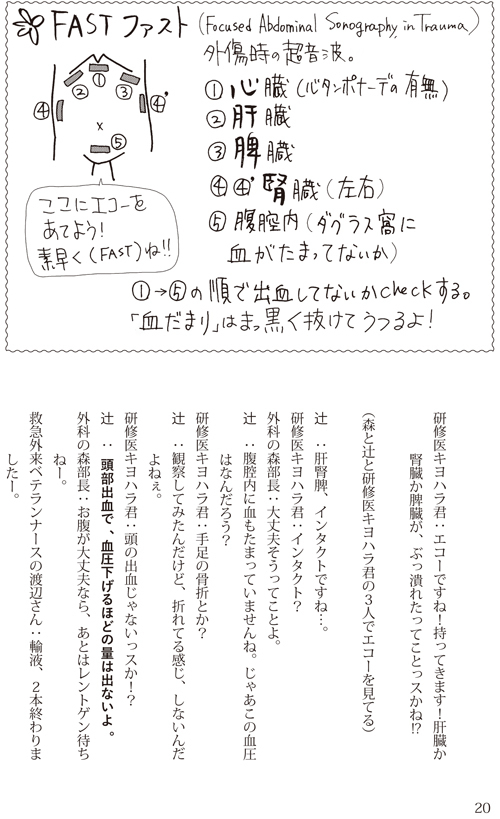 FAST ファスト (Focused Abdominal Sonography, in Trauma)
外傷時の超音波。
①心臓(心タンポナーデの有無)
②肝臓
③脾臓
④④'腎臓(左右)
⑤腹腔内(ダグラス窩に
血がたまってないか)
①
②
③
④
④'
⑤
ここにエコーを
あてよう!
素早く(FAST)ね!!
①→⑤の順で出血してないかcheckする。
「血だまり」はまっ黒く抜けてうつるよ!
研修医キヨハラ君:エコーですね!持ってきます!肝臓か
腎臓か脾臓が、ぶっ潰れたってことっスかね!?
(森と辻と研修医キヨハラ君の3人でエコーを見てる)
辻 :肝腎脾、インタクトですね…。
研修医キヨハラ君:インタクト?
外科の森部長:大丈夫そうってことよ。
辻 :腹腔内に血もたまっていませんね。じゃあこの血圧
はなんだろう?
研修医キヨハラ君:手足の骨折とか?
辻 :観察してみたんだけど、折れてる感じ、しないんだ
よねぇ。
研修医キヨハラ君:頭の出血じゃないっスか!?
辻 :頭部出血で、血圧下げるほどの量は出ないよ。
外科の森部長:お腹が大丈夫なら、あとはレントゲン待ち
ねー。
救急外来ベテランナースの渡辺さん:輸液、2本終わりま
したー。
20